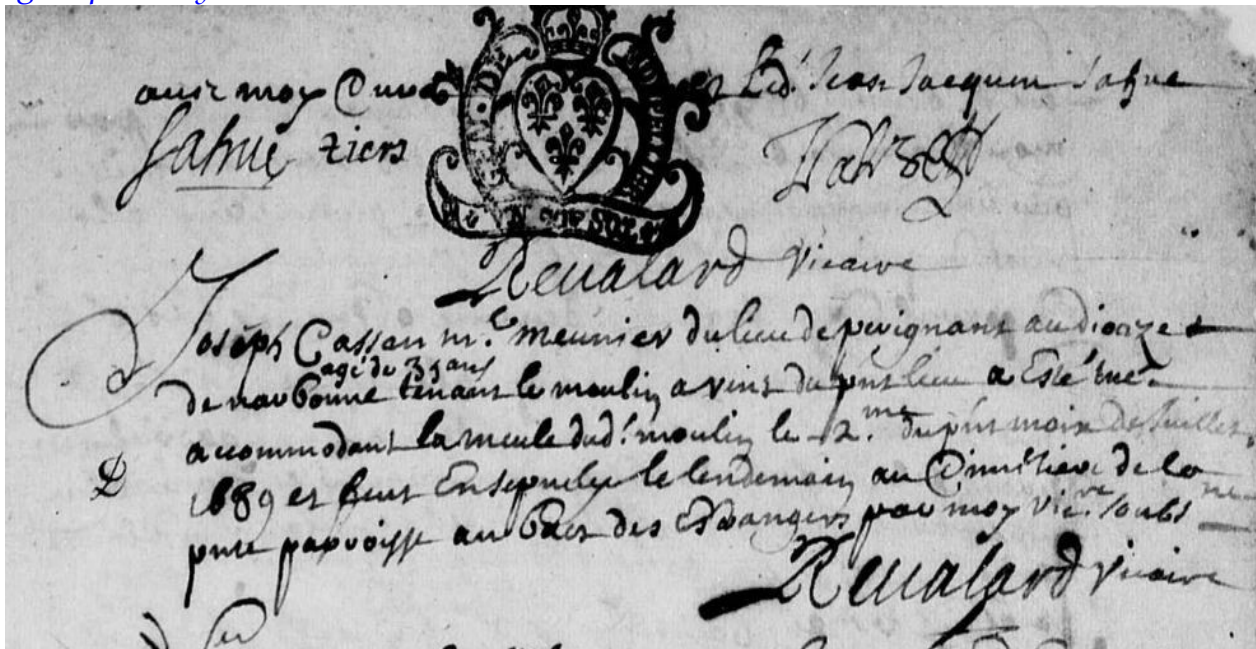 avec moy Curé et Led. Jean Jacques Sahue
Sahue tiers
GEN. DE MONTPELLIER
VN SOL
Reualard vicaire
Joseph Cassan m.e meunier du lieu de perignant au dioceze
agé de 35 ans
de narbonne tenant le moulin a vent du pnt lieu a Esté tué
accommodant la meule dud. moulin le 2.me du pnt mois de Juillet
1689 et feut Ensepuely le lendemain au Cimetiere de la
pnte parroisse au Bacs des Estrangers par moy vic.re soubs.ne
Reualard vicaire